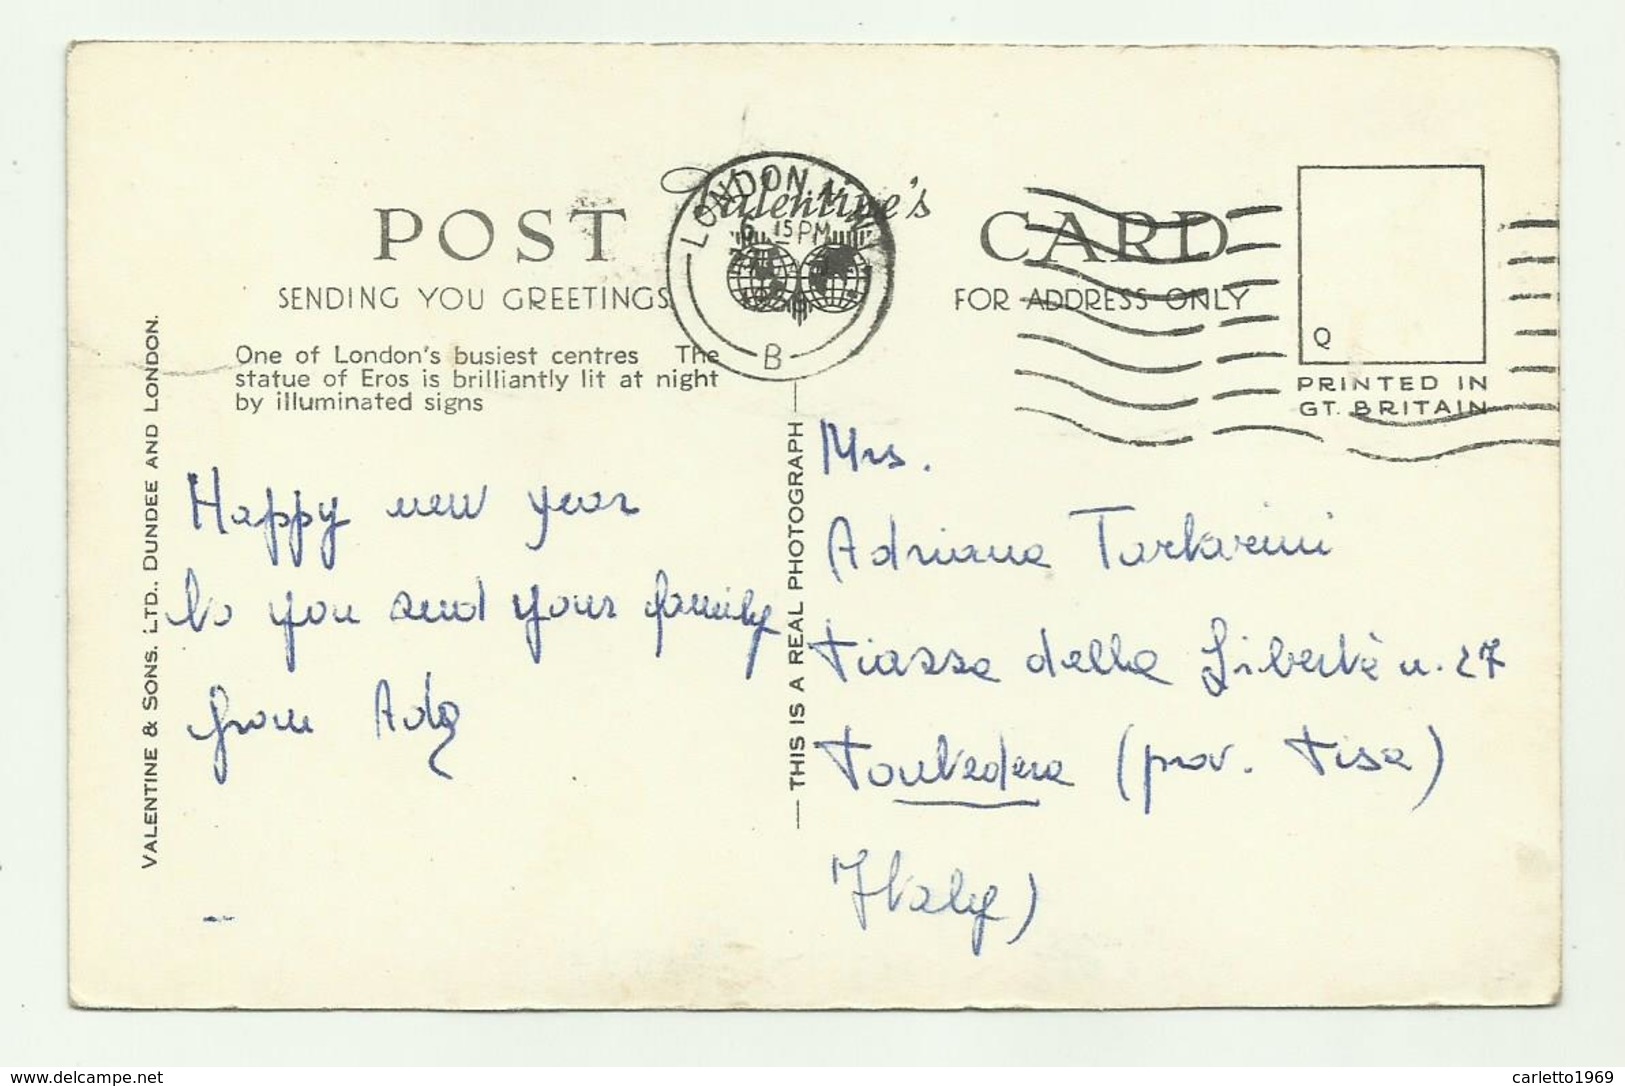 POST
Valentine's
CARD
SENDING YOU GREETINGS
FOR ADDRESS ONLY
LONDON
6 15 PM
B
Q
PRINTED IN
GT. BRITAIN
One of London's busiest centres The
statue of Eros is brilliantly lit at night
by illuminated signs
VALENTINE & SONS. LTD., DUNDEE AND LONDON.
THIS IS A REAL PHOTOGRAPH
Happy new year
to you and your family
from Ada
Mrs.
Adriana Tartarini
Piazza della Libertà n. 27
Pontedera (prov. Pisa)
Italy)
www.delcampe.net
carletto1969